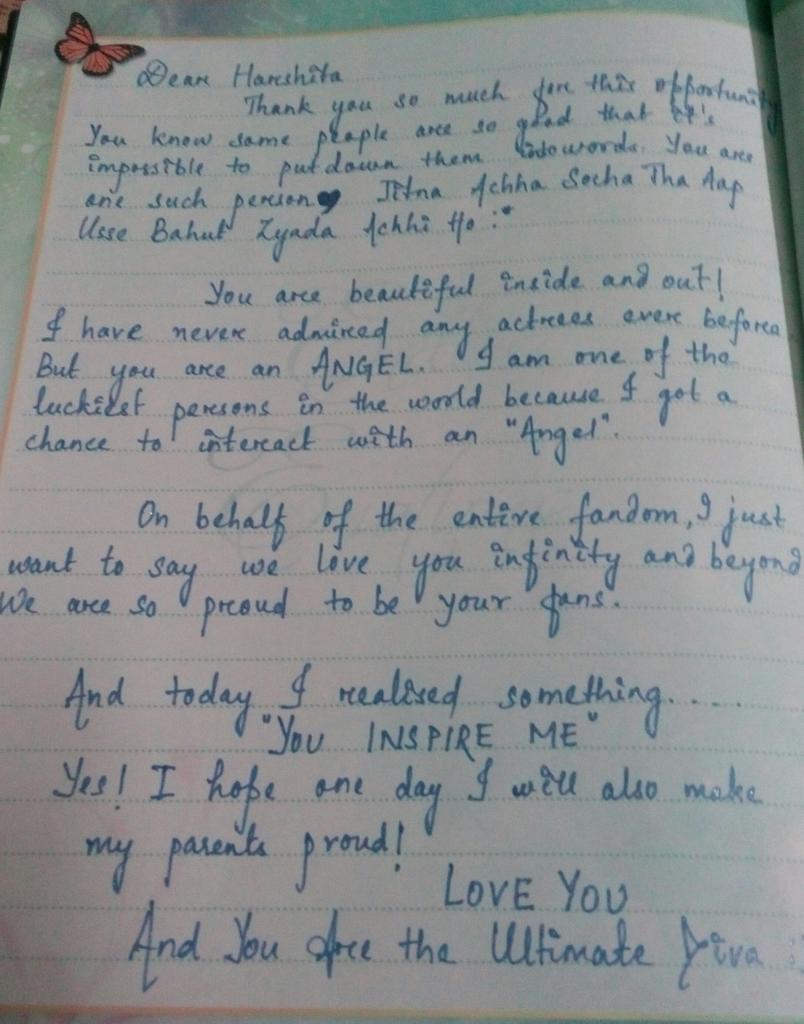 Dear Harshita
Thank you so much for this opportunity
You know some people are so good that it's
impossible to put down them into words. You are
one such person♥ Jitna Achha Socha Tha Aap
Usse Bahut Zyada Achhi Ho :*
You are beautiful inside and out!
I have never admired any actrees ever before
But you are an ANGEL. I am one of the
luckiest persons in the world because I got a
chance to interact with an "Angel".
On behalf of the entire fandom, I just
want to say we love you infinity and beyond
We are so proud to be your fans.
And today I realised something.....
"You INSPIRE ME"
Yes! I hope one day I will also make
my parents proud!
LOVE YOU
And You Are the Ultimate Diva :